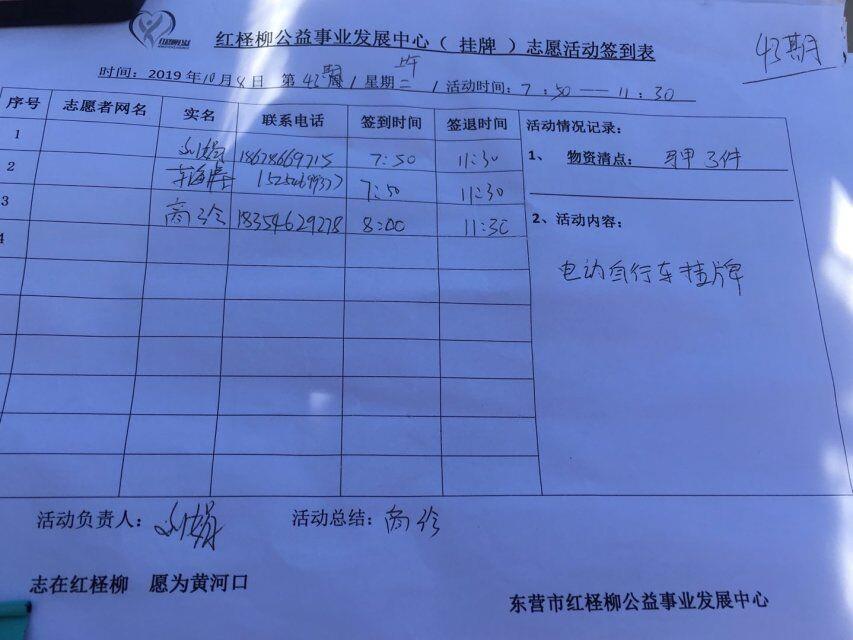 红柽柳公益事业发展中心（ 挂牌 ）志愿活动签到表
43期
时间：2019 年10月8日 第 43期 / 星期二 / 活动时间：7：50 — 11：30
序号 志愿者网名 实名 联系电话 签到时间 签退时间 活动情况记录：
1 刘娟 18678669715 7:50 11:30
1、 物资清点： 马甲3件
2 15254699377 7:50 11:30
3 商玲 18354629278 8:00 11:30
2、活动内容：
4
电动自行车挂牌
活动负责人：刘娟 活动总结：商玲
志在红柽柳 愿为黄河口
东营市红柽柳公益事业发展中心